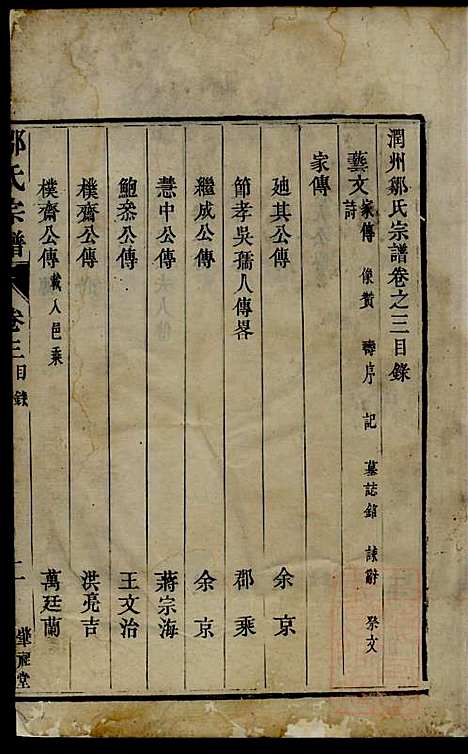 潤州鄒氏宗譜卷之三目錄
藝文 家傳 像贊 壽序 記 墓誌銘 誄辭 祭文
詩
家傳
廸其公傳 余京
節孝吳孺人傳畧 郡乘
繼成公傳 余京
慧中公傳 蔣宗海
鮑叅公傳 王文治
樸齋公傳 洪亮吉
樸齋公傳 載入邑乘 萬廷蘭
鄒氏宗譜 卷三 目錄 二 肇禋堂